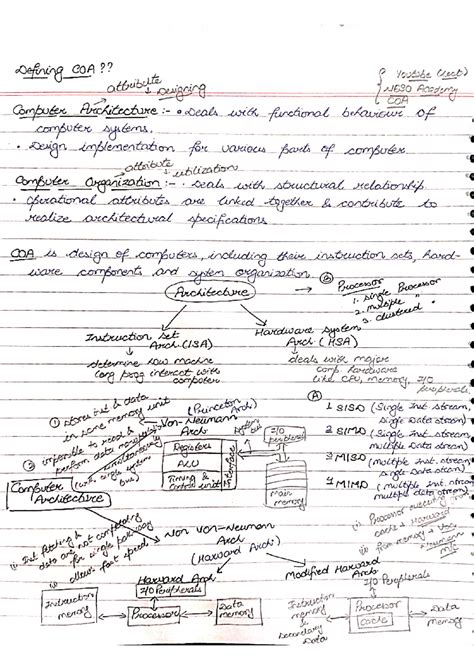 Defining COA ??
Youtube (Lect)
NESO Academy
COA
attribute
Designing
Computer Architecture :- • Deals with functional behaviour of
computer systems.
• Design implementation for various parts of computer.
attribute
utilization
Computer Organization :- • Deals with structural relationship
• operational attributes are linked together & contribute to
realize architectural specifications
COA is design of computers, including their instruction sets, hard-
ware components and system organization.
Architecture
Processor
1. Single Processor
2. multiple "
3. clustered "
Instruction Set
Arch. (ISA)
Hardware System
Arch. (HSA)
determine how machine
lang prog interact with
computer
deals with major
comp. hardware
like CPU, memory, I/O
peripherals
① stores inst & data
in same memory unit
(Princeton
Arch)
Von-Neumann
Arch
② impossible to read &
perform data
simultaneously
single system
bus)
Registers
ALU
Timing &
control unit
Interface
I/O
peripherals
Main
memory
1 SISD (Single Inst. stream,
Single Data stream)
2 SIMD (Single Inst. stream,
multiple Data stream)
3 MISD (multiple Inst. stream
Single Data stream)
4 MIMD (multiple Inst. stream
multiple data stream)
Computer
Architecture
Non Von-Neumann
Arch
(Harvard Arch)
i) Inst fetching &
data are not competing
for single pathway
ii) allows fast speed
Processor executing
cache → Harvard
memory → Von
Harvard Arch
Modified Harvard
Arch
I/O Peripherals
I/O Peripherals
Instruction
memory
Processor
Data
memory
Instruction
memory
&
Secondary
Data
Processor
cache
Data
memory